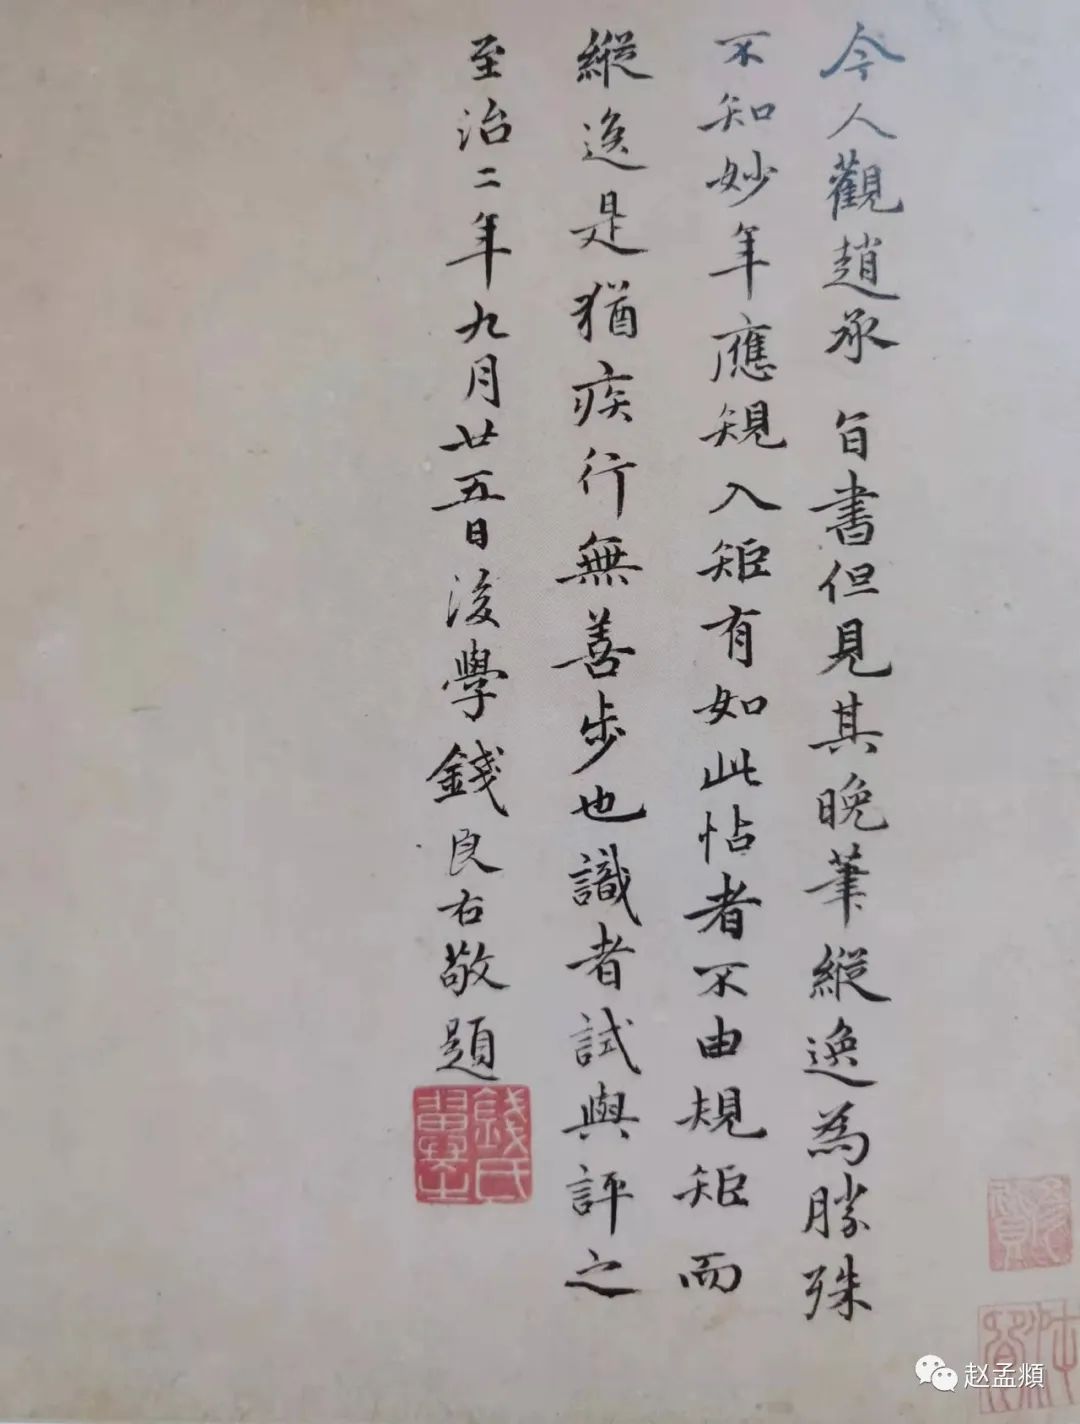 今人觀趙承旨書但見其晚筆縱逸為勝殊
不知妙年應規入矩有如此帖者不由規矩而
縱逸是猶疾行無善步也識者試與評之
至治二年九月廿五日後學錢良右敬題
錢氏
赵孟頫